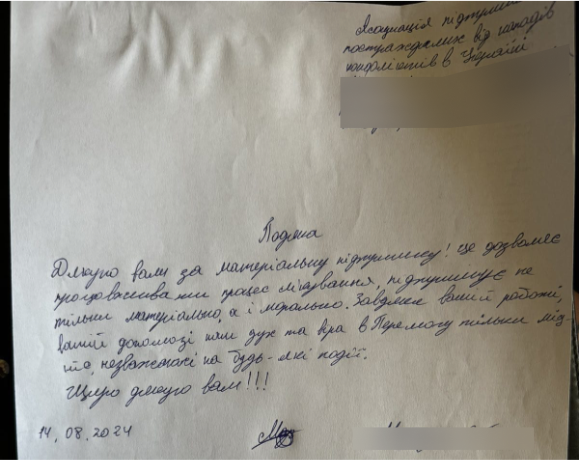 Асоціація підтримки
постраждалих від нападів
в Україні
Подяка
Дякую вам за матеріальну підтримку! Це дозволяє
процес лікування, підтримує не
тільки матеріально, а і морально. Завдяки вашій роботі,
вашій допомозі наш дух та віра в Перемогу тільки міц
незважаючі на будь-які події.
Щиро дякую вам!!!
14.08.2024